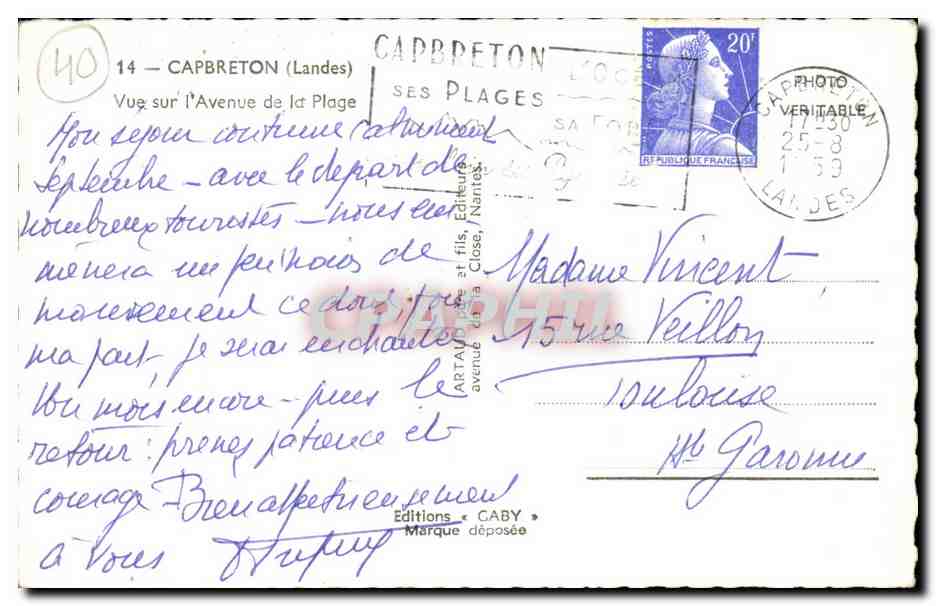 40
14 — CAPBRETON (Landes)
Vue sur l'Avenue de la Plage
CAPBRETON
SES PLAGES
L'OCE
SA FOR
POSTES
20F
REPUBLIQUE FRANÇAISE
PHOTO
VERITABLE
CAPBRETON
17-30
25-8
1959
LANDES
Mon séjour continue
septembre - avec le depart de
nombreux touristes - nous
mènera un peu moins de
mouvement ce dont, pour
ma part, je serai enchantée
Un mois encore - puis le
retour : prenez patience et
courage - Bien affectueusement
à vous
Madame Vincent
15 rue Veillon
Toulouse
Hte Garonne
ARTAUD père et fils, Editeurs
avenue de la Close, Nantes.
Editions « GABY »
Marque déposée
CPAPHIL